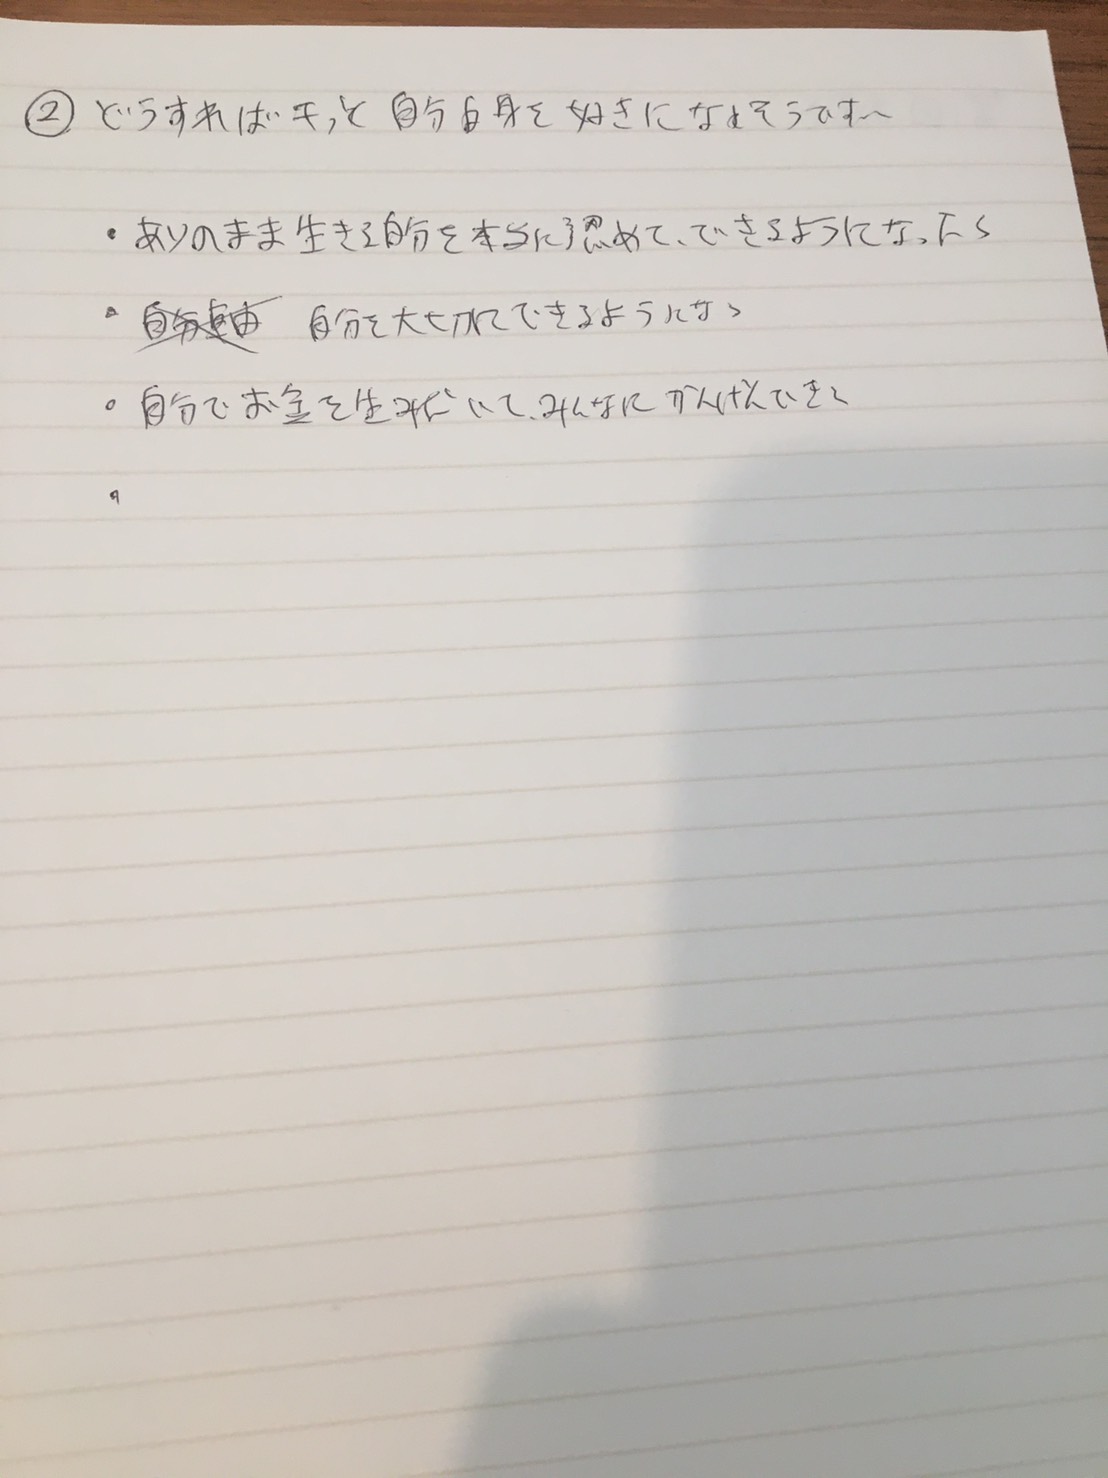 ② どうすればもっと自分自身を好きになれそうですか
・ありのまま生きる自分を本当に認めて、できるようになったら
・自分を大切にできるようになる
・自分でお金を生みだして、みんなにかんげんできる
・